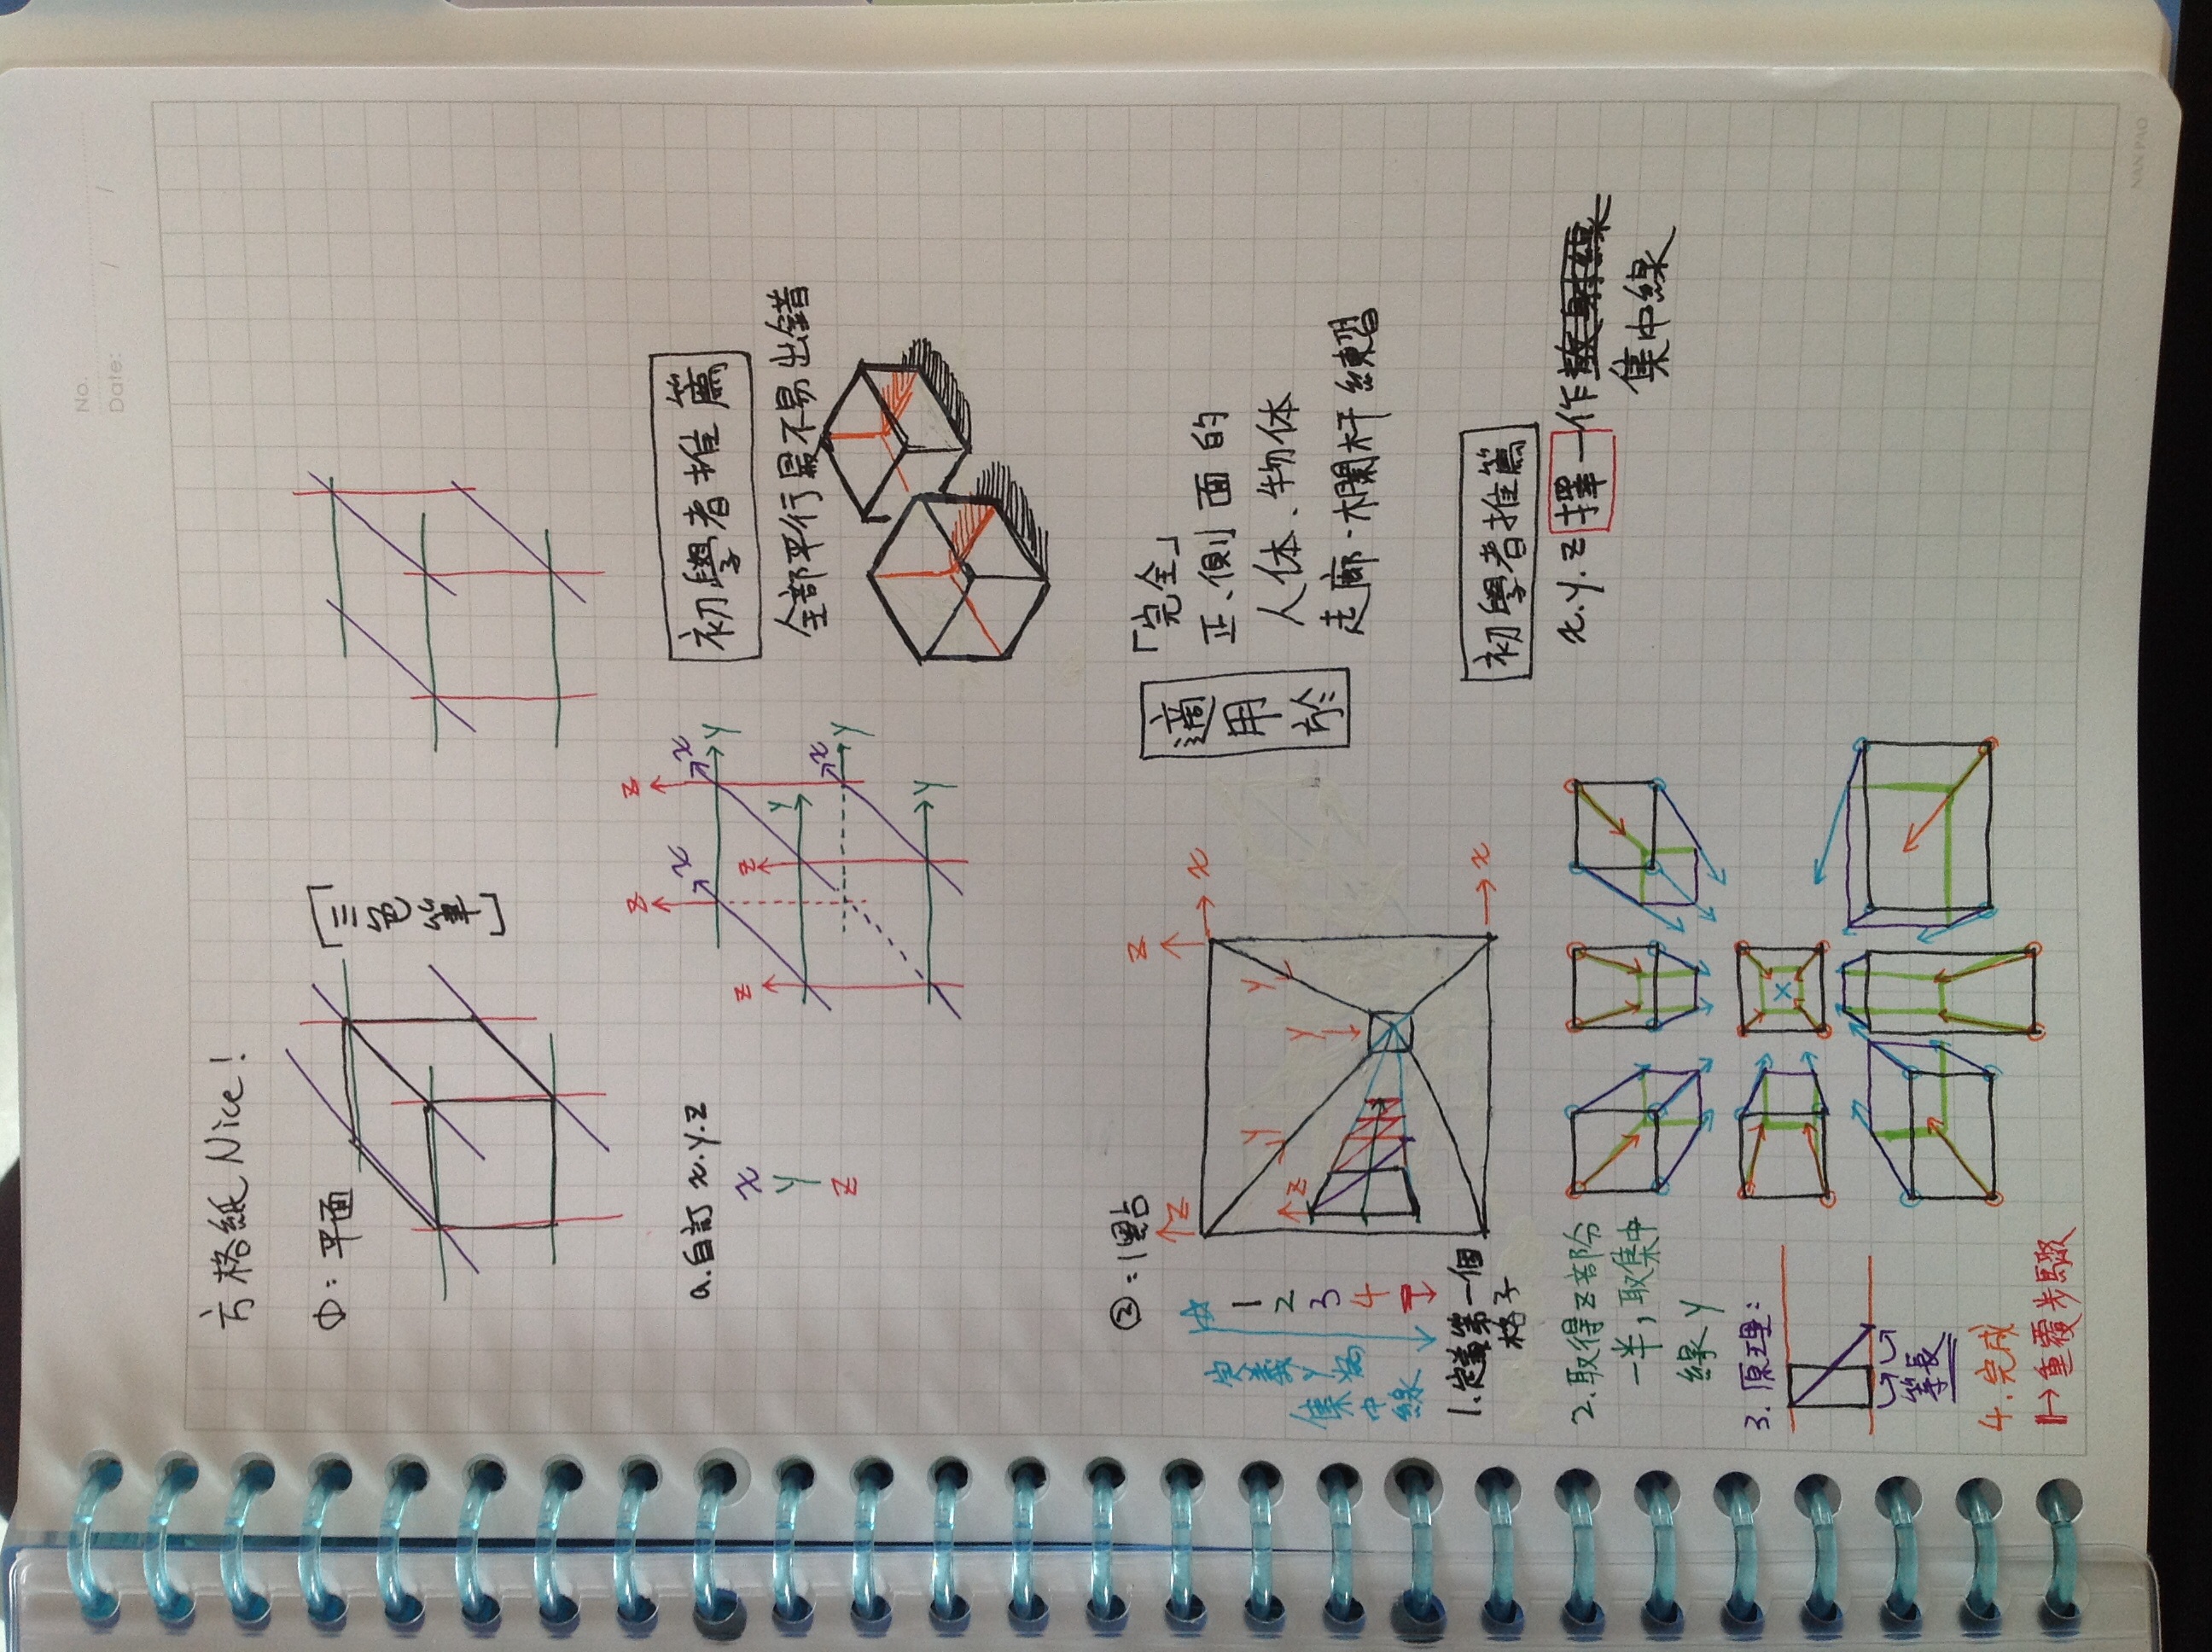 No.
Date: / /
方格紙 Nice!
①:平面
[三色筆]
a.自訂 x.y.z
x
y
z
z
z
z
z
x
x
x
y
y
y
y
初學者推薦
全部平行最不易出錯
②:1點
定義y為
集中線
1
2
3
4
z
z
z
y
y
y
x
x
適用於
「完全」
正、側面的
人体、物体
走廊、欄杆練習
1.定義第一個
格子
2.取得z部分
一半,取集中
線y
3.原理:
等長
4.完成
1→重覆步驟
初學者推薦
x.y.z 擇一作
集中線
NAN PAO